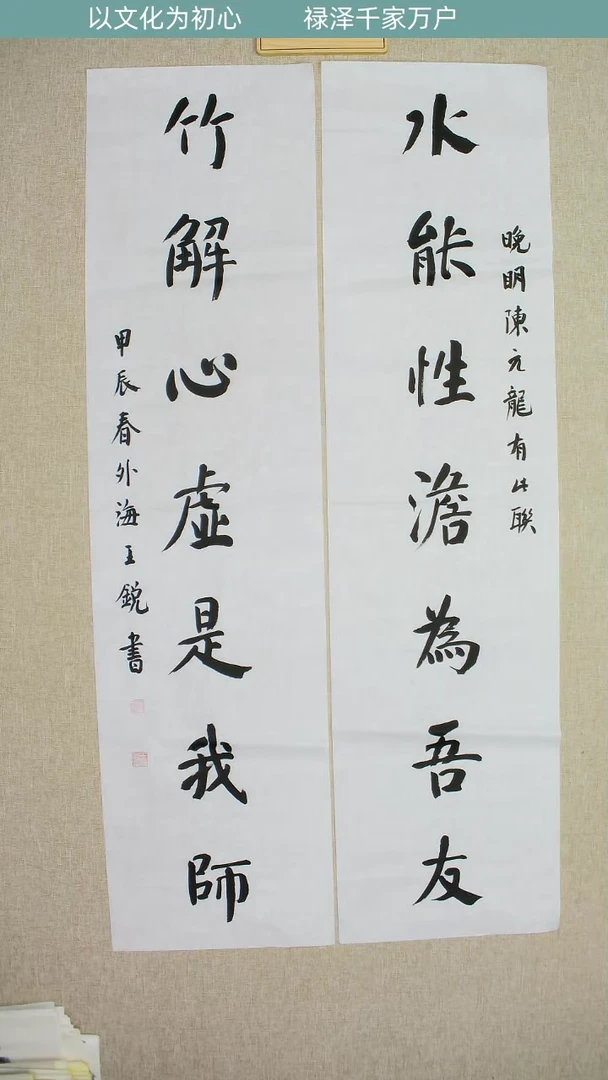 以文化为初心 禄泽千家万户
晚明陳元龍有此聯
水能性澹為吾友
竹解心虛是我師
甲辰春外海王銳書